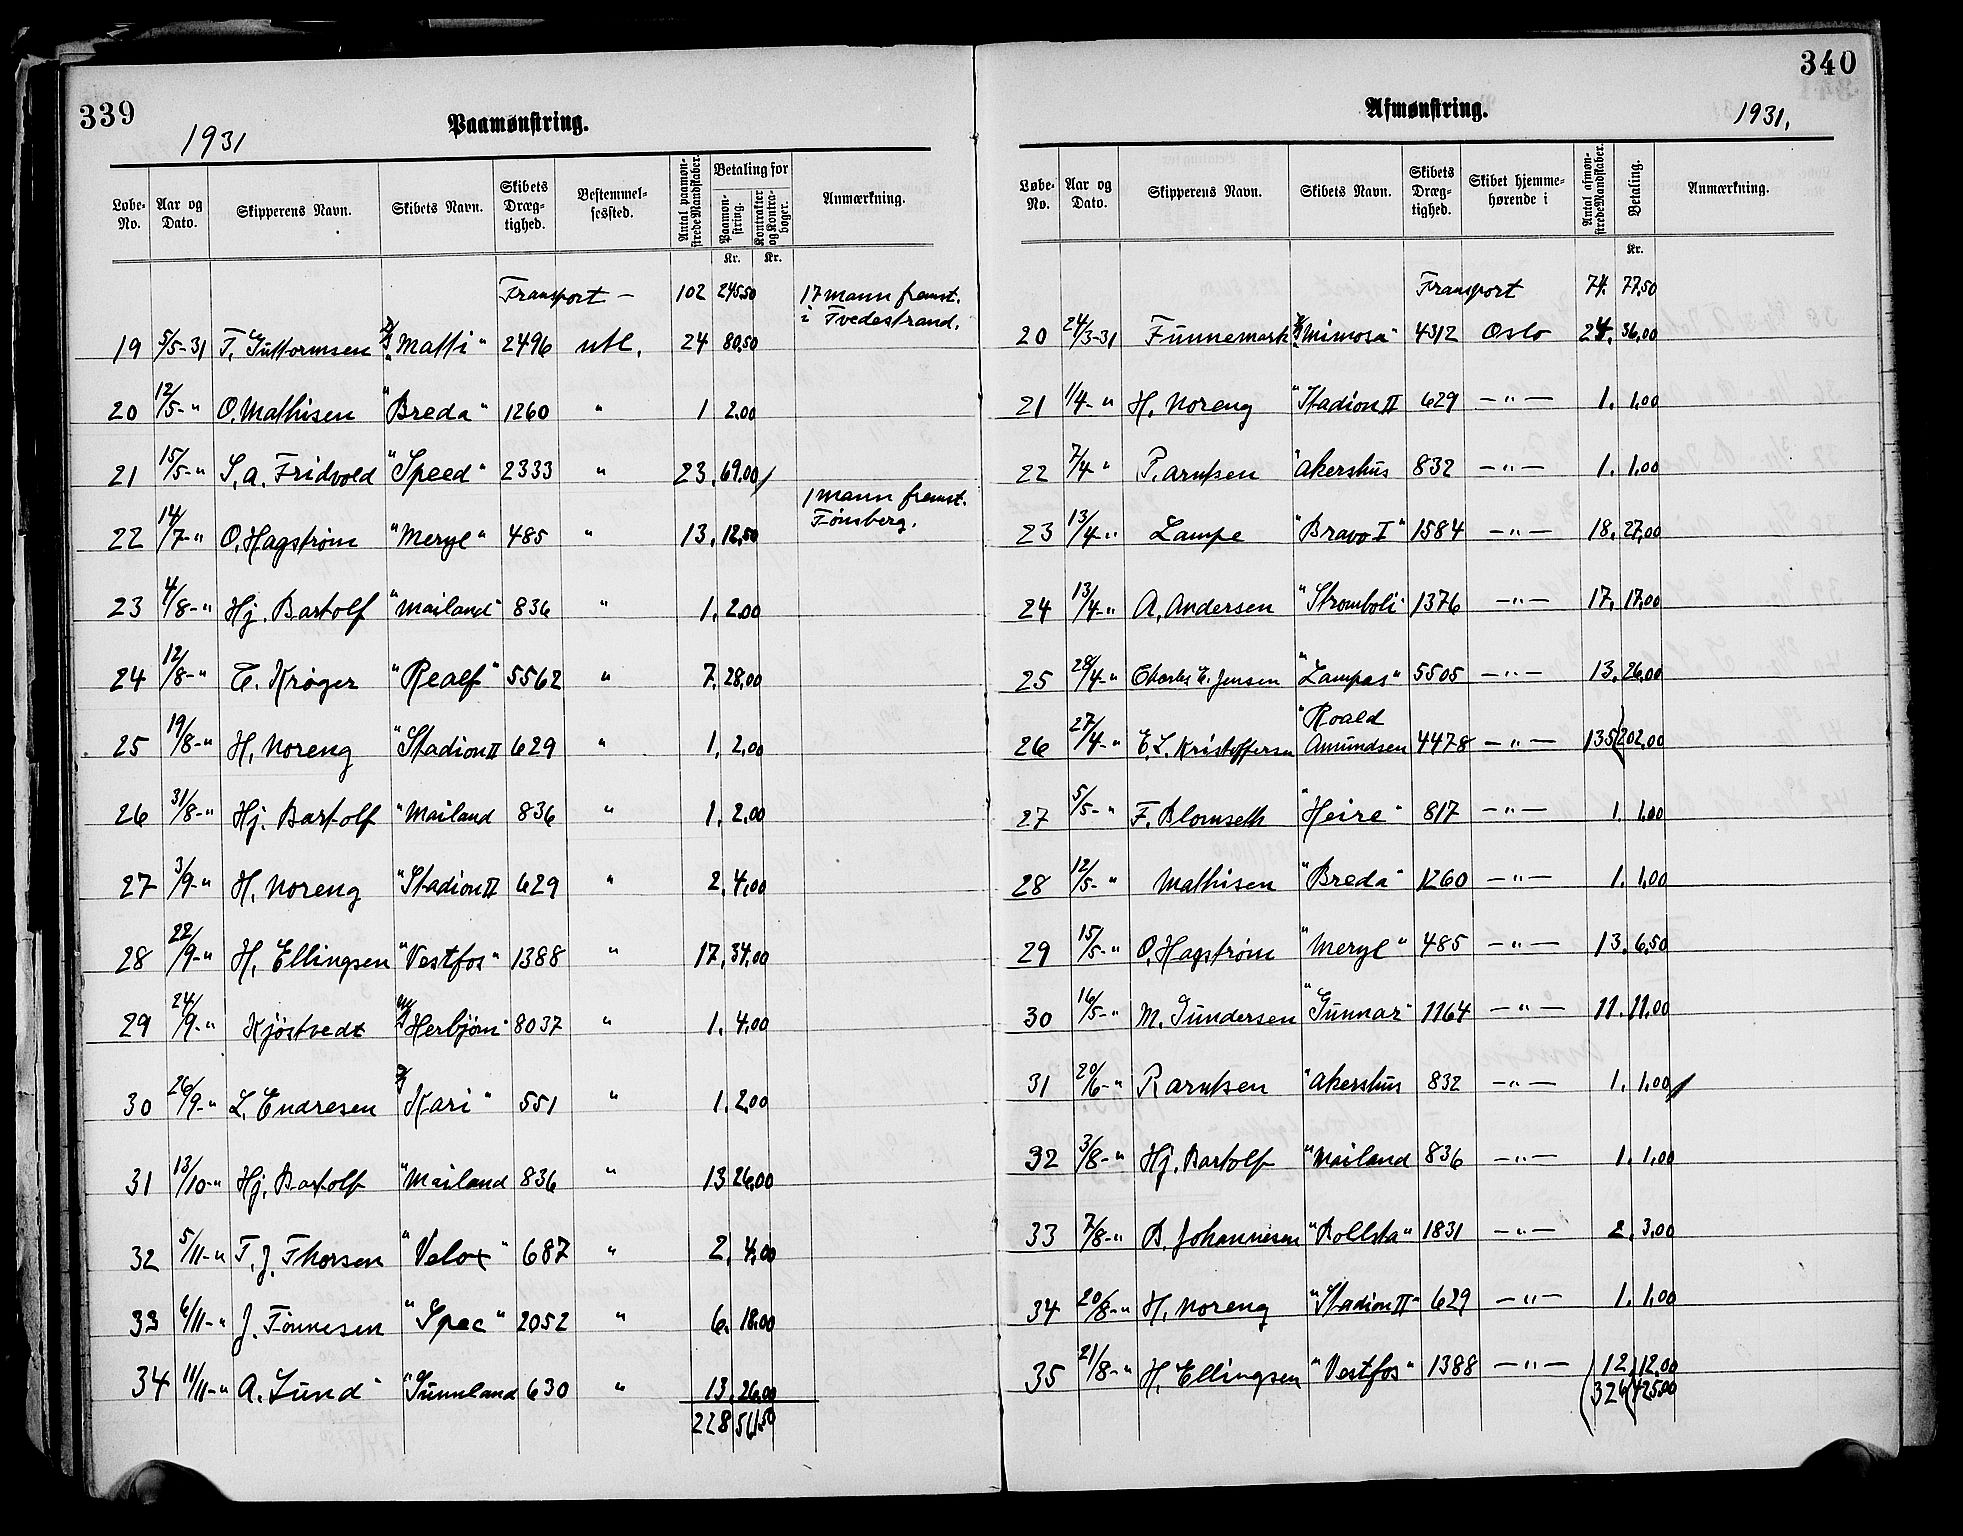 339
1931
Paamønstring.
Løbe-No. Aar og Dato. Skipperens Navn. Skibets Navn. Skibets Dræg-tighed. Bestemmel-sessted. Antal paamøn-strede Mandskaber. Betaling for Paamøn-string. Kontrakter og Kontra-bøger. Anmærkning.
Kr. Kr.
Transport — 102 245.50 17 mann fremst.
i Tvedestrand.
19 5/5-31 T. Guttormsen "Matti" 2496 utl. 24 80.50
20 12/5-" O. Mathisen "Breda" 1260 " 1 2.00
21 15/5-" S. A. Fridvold "Speed" 2333 " 23. 69.00
1 mann fremst.
Tønsberg.
22 14/7-" O. Hagstrøm "Meryl" 485 " 13. 12.50
23 4/8-" Hj. Bartolf "Mailand" 836 " 1. 2.00
24 12/8-" C. Krøger "Realf" 5562 " 7. 28.00
25 19/8-" H. Noreng "Stadion II 629 " 1. 2.00
26 31/8-" Hj. Bartolf "Mailand 836 " 1. 2.00
27 3/9-" H. Noreng "Stadion II 629 " 2. 4.00
28 22/9-" H. Ellingsen "Vestfos" 1388 " 17. 34.00
29 24/9-" Kjøstvedt Herbjørn" 8037 " 1. 4.00
30 26/9-" L. Endresen Kari" 551 " 1. 2.00
31 13/10-" Hj. Bartolf "Mailand 836 " 13 26.00
32 5/11-" T. J. Thorsen "Velox" 687 " 2. 4.00
33 6/11-" J. Tønnesen "Spec" 2052 " 6. 18.00
34 11/11-" A. Lund "Sunnland 630 " 13. 26.00
228 561.50
340
Afmønstring.
1931.
Løbe-No. Aar og Dato. Skipperens Navn. Skibets Navn. Skibets Dræg-tighed. Skibet hjemme-hørende i Antal afmøn-strede Mandskaber. Betaling. Anmærkning.
Kr.
Transport 74. 77.50
20 24/3-31 Funnemark "Mimosa" 4312 Oslo 24. 36.00
21 1/4-" H. Noreng "Stadion II 629 —"— 1. 1.00
22 7/4 " P. Arntsen "Akershus 832 —"— 1. 1.00
23 13/4-" Lampe "Bravo I" 1584 —"— 18. 27.00
24 13/4-" A. Andersen "Stromboli" 1376 —"— 17. 17.00
25 28/4-" Charles E. Jensen "Lampas" 5505 —"— 13. 26.00
26 27/4-" E. L. Kristoffersen "Roald
Amundsen 4478 —"— 135 202.00
27 5/5-" F. Blomseth "Heire" 817 —"— 1. 1.00
28 12/5-" Mathisen "Breda" 1260 —"— 1. 1.00
29 15/5-" O. Hagstrøm "Meryl" 485 —"— 13. 6.50
30 16/5-" M. Gundersen "Gunnar" 1164 —"— 11. 11.00
31 20/6-" P. Arntsen "Akershus 832 —"— 1. 1.00
32 3/8-" Hj. Bartolf "Mailand 836 —"— 1. 1.00
33 7/8-" B. Johannesen "Rollsta" 1831 —"— 2. 3.00
34 20/8-" H. Noreng "Stadion II" 629 —"— 1. 1.00
35 21/8-" H. Ellingsen "Vestfos" 1388 —"— 12. 12.00
326 425.00